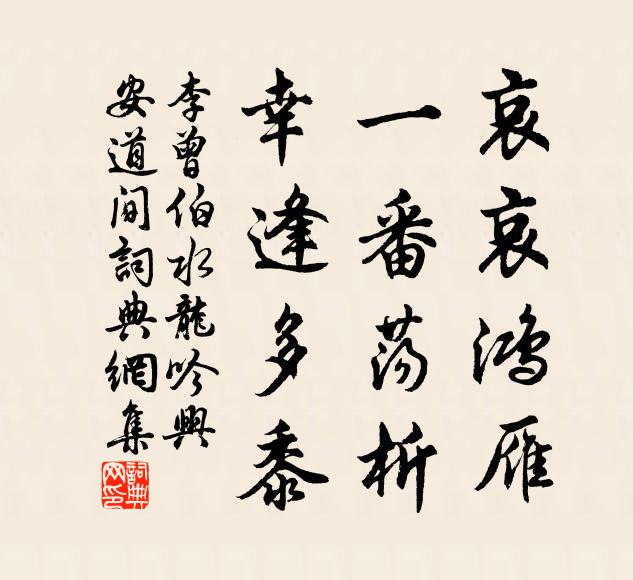 哀哀鴻雁
一番蕩析
幸逢多黍
李曾伯水龍吟興
安道間詞典網集
詞典網印